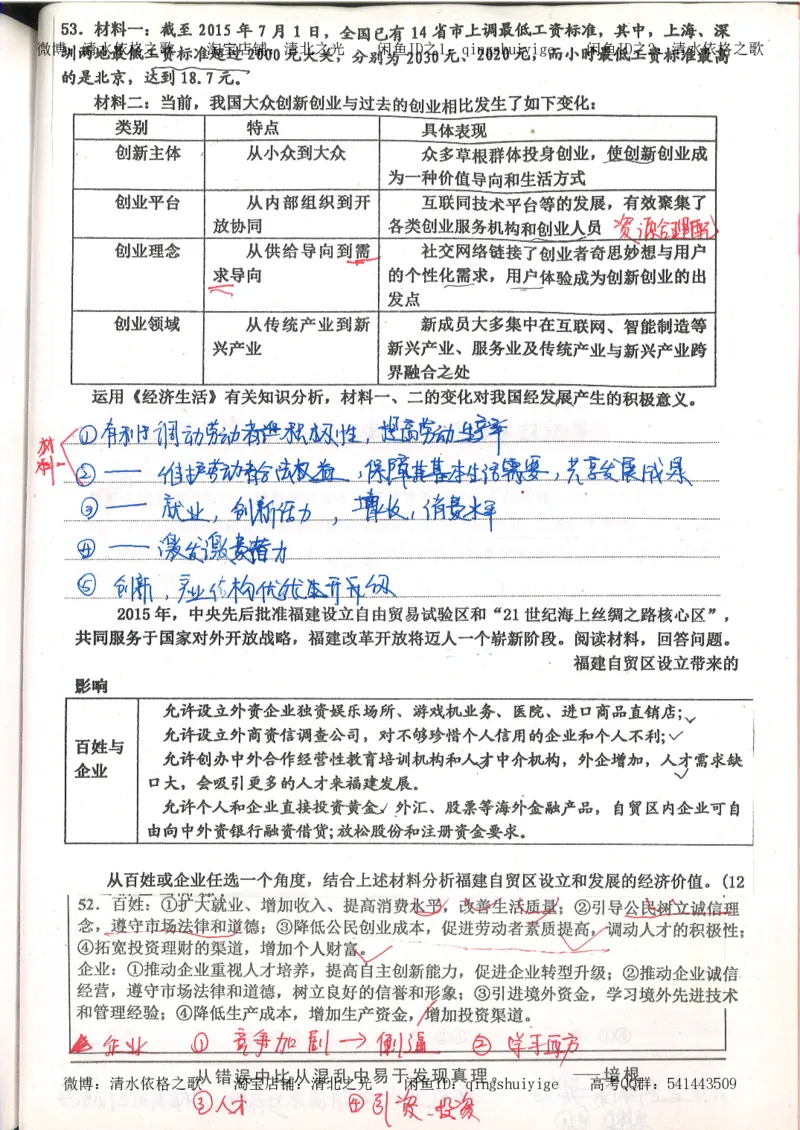 53．材料一：截至 2015 年 7 月 1 日，全国已有 14 省市上调最低工资标准，其中，上海、深
圳两地最低工资标准超过 2000 元大关，分别为 2030 元、2020 元，而小时最低工资标准最高
微博：清水依格之歌 淘宝店铺：清北之光 闲鱼ID之1：qingshuiyige 闲鱼ID之2：清水依格之歌
的是北京，达到 18.7 元。
材料二：当前，我国大众创新创业与过去的创业相比发生了如下变化：
类别 特点 具体表现
创新主体 从小众到大众 众多草根群体投身创业，使创新创业成
为一种价值导向和生活方式
创业平台 从内部组织到开 互联同技术平台等的发展，有效聚集了
放协同 各类创业服务机构和创业人员 资源合理配
创业理念 从供给导向到需 社交网络链接了创业者奇思妙想与用户
求导向 的个性化需求，用户体验成为创新创业的出
发点
创业领域 从传统产业到新 新成员大多集中在互联网、智能制造等
兴产业 新兴产业、服务业及传统产业与新兴产业跨
界融合之处
运用《经济生活》有关知识分析，材料一、二的变化对我国经发展产生的积极意义。
材料一
①有利于调动劳动者积极性，提高劳动生产率
②—— 维护劳动者合法权益，保障其基本生活需要，共享发展成果
③—— 就业，创新活力，增收，消费水平
④—— 激发消费潜力
⑤ 创新，产业结构优化
2015 年，中央先后批准福建设立自由贸易试验区和“21 世纪海上丝绸之路核心区”，
共同服务于国家对外开放战略，福建改革开放将迈人一个崭新阶段。阅读材料，回答问题。
福建自贸区设立带来的
影响
百姓与
企业
允许设立外资企业独资娱乐场所、游戏机业务、医院、进口商品直销店；
允许设立外商资信调查公司，对不够珍惜个人信用的企业和个人不利；
允许创办中外合作经营性教育培训机构和人才中介机构，外企增加，人才需求缺
口大，会吸引更多的人才来福建发展。
允许个人和企业直接投资黄金、外汇、股票等海外金融产品，自贸区内企业可自
由向中外资银行融资借贷；放松股份和注册资金要求。
从百姓或企业任选一个角度，结合上述材料分析福建自贸区设立和发展的经济价值。(12
52．百姓：①扩大就业、增加收入、提高消费水平，改善生活质量；②引导公民树立诚信理
念，遵守市场法律和道德；③降低公民创业成本，促进劳动者素质提高，调动人才的积极性；
④拓宽投资理财的渠道，增加个人财富。
企业：①推动企业重视人才培养，提高自主创新能力，促进企业转型升级；②推动企业诚信
经营，遵守市场法律和道德，树立良好的信誉和形象；③引进境外资金，学习境外先进技术
和管理经验；④降低生产成本，增加生产资金，增加投资渠道。
企业 ① 竞争加剧→倒逼 ② 学手西方
从错误中比从混乱中易于发现真理。 ——培根
微博：清水依格之歌 淘宝店铺：清北之光 闲鱼ID：qingshuiyige 高考QQ群：541443509
③人才 ④引资、投资